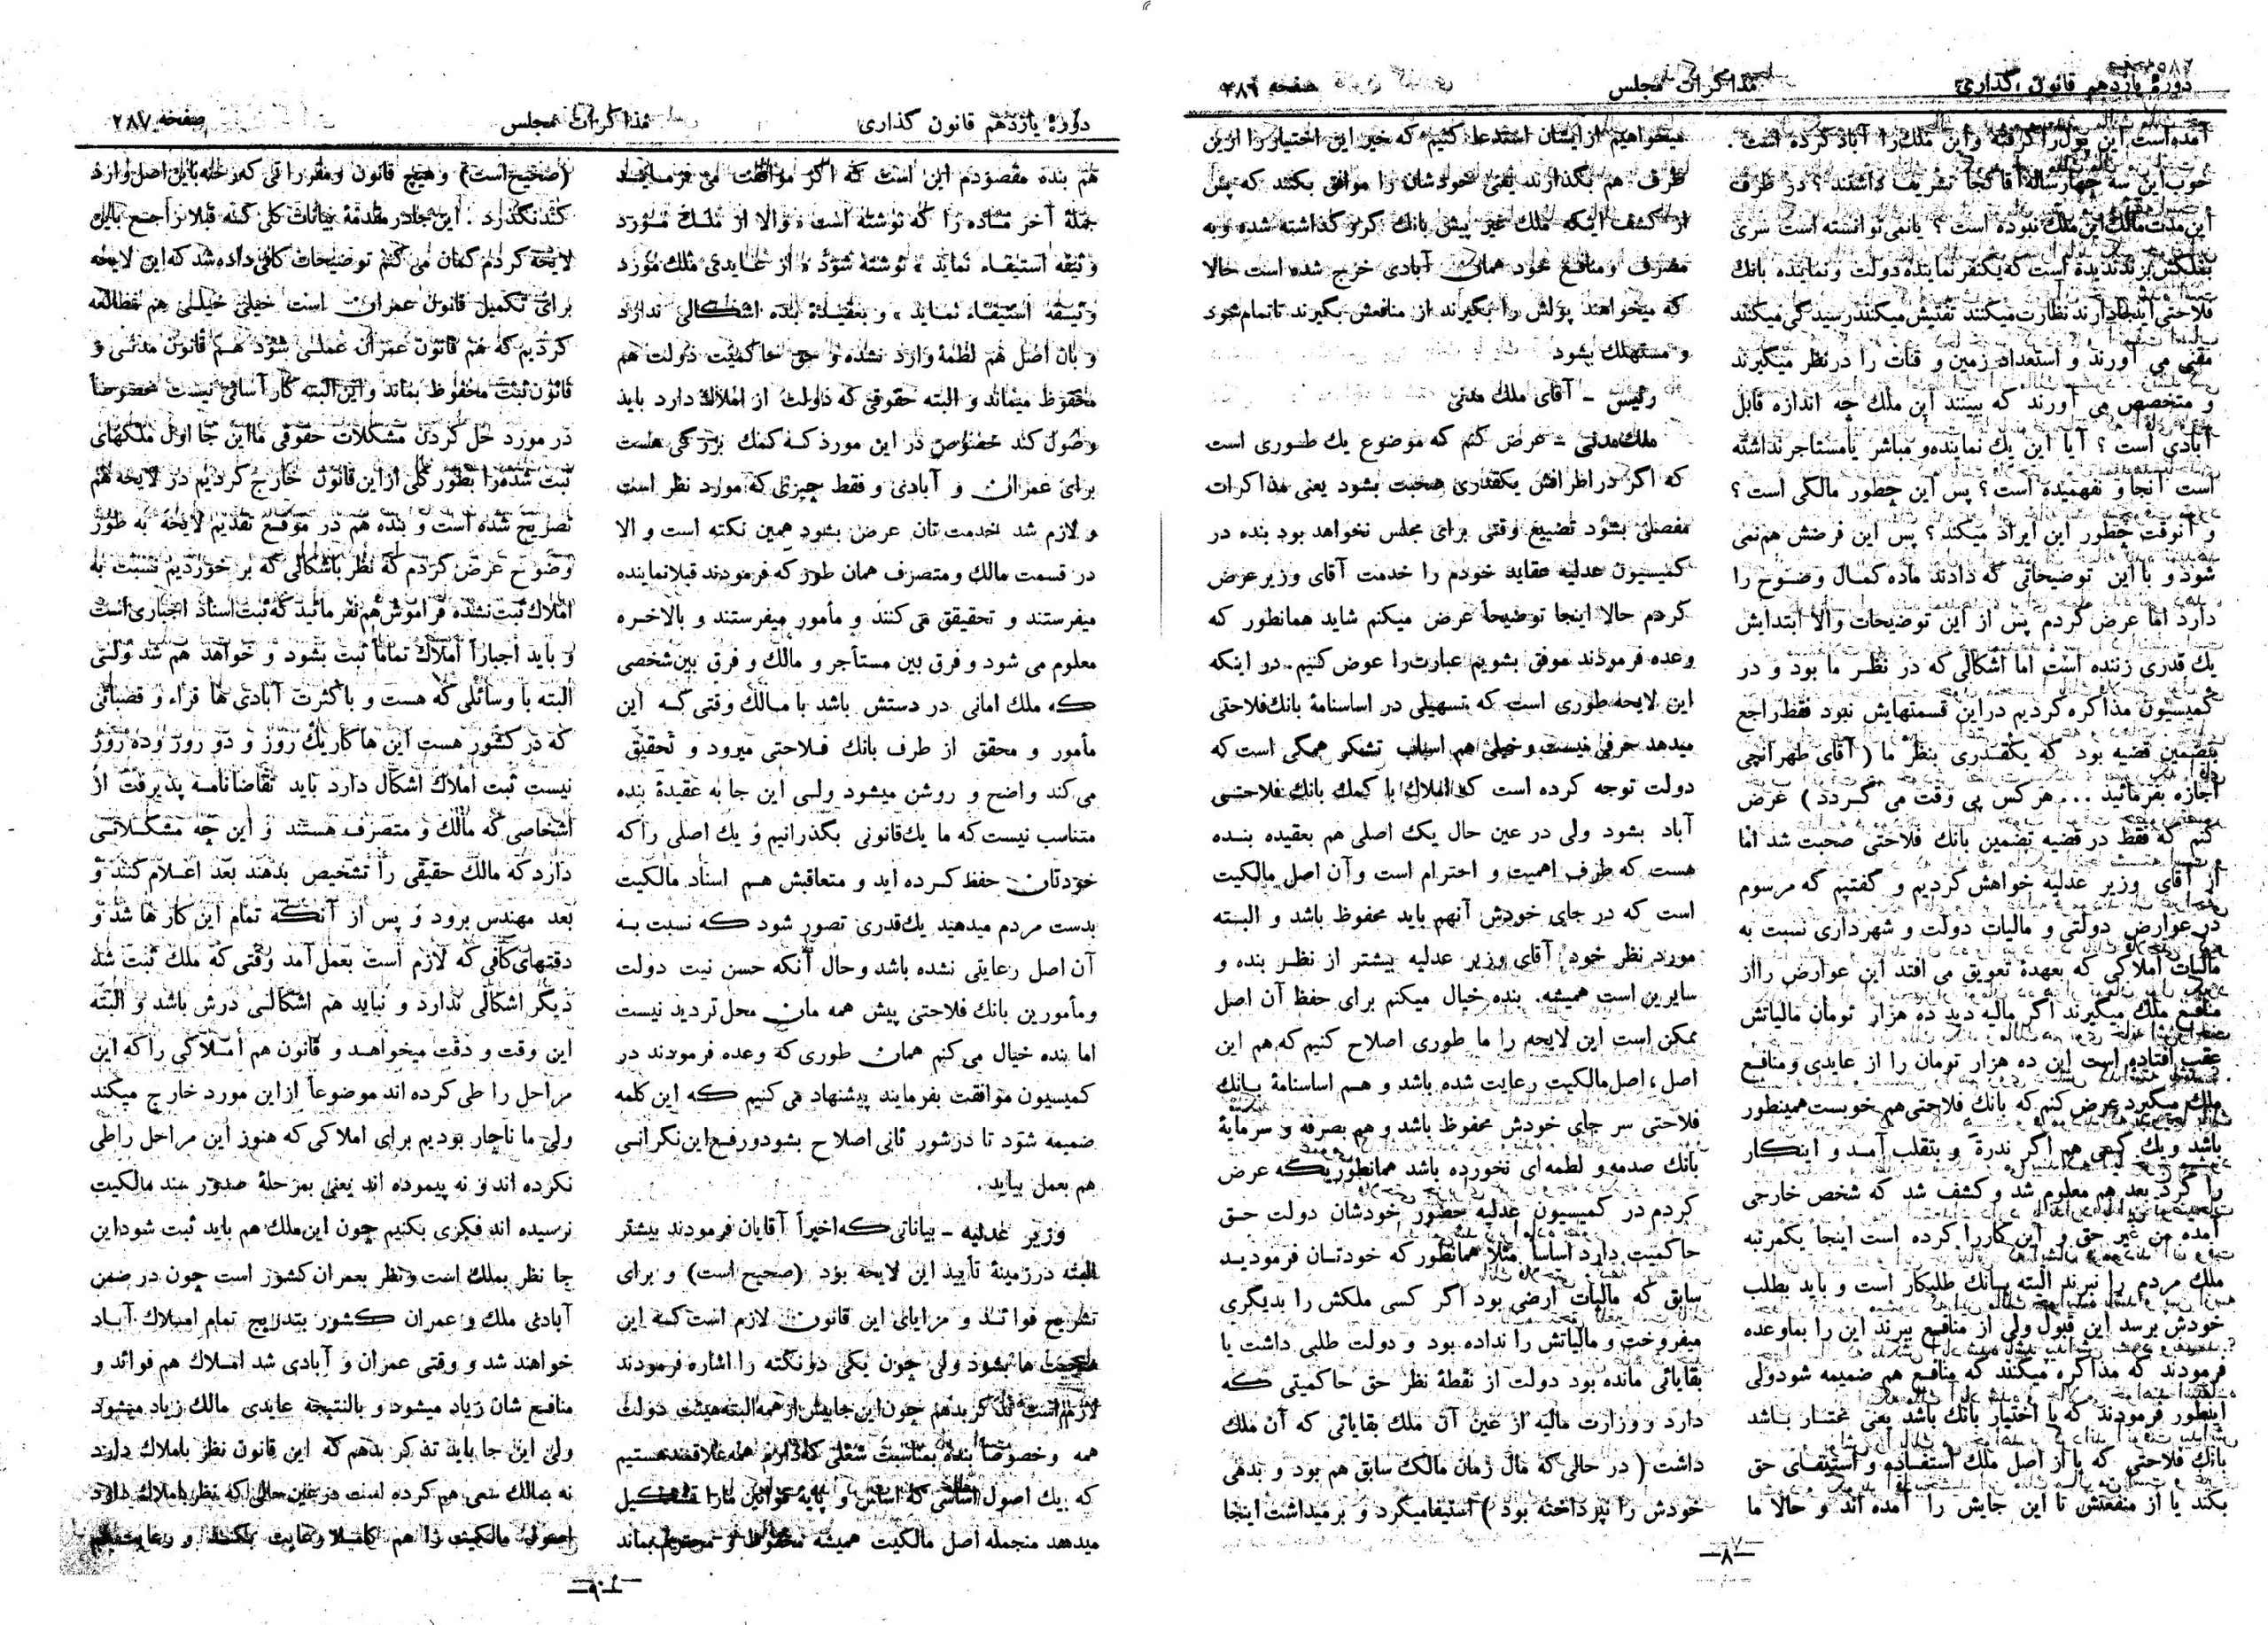 دورهٔ یازدهم قانون گذاری
مذاکرات مجلس
صفحه ۲۸۶
آمده است این پول را گرفته و این ملک را آباد کرده است .
خوب این سه چهار ساله آقا کجا تشریف داشتند ؟ در ظرف
این مدت مالک این ملک نبوده است ؟ یا نمی توانسته است سری
بملکش بزند ندیده است که یکنفر نماینده دولت و نماینده بانک
فلاحتی اینجا دارند نظارت میکنند تفتیش میکنند رسیدگی میکنند
مقنی می آورند و استعداد زمین و قنات را در نظر میگیرند
و متخصص می آورند که ببینند این ملک چه اندازه قابل
آبادی است ؟ آیا این یک نماینده و مباشر یا مستاجر نداشته
است آنجا و نفهمیده است ؟ پس این چطور مالکی است ؟
و آنوقت چطور این ایراد میکند ؟ پس این فرضش هم نمی
شود و با این توضیحاتی که دادند ماده کمال وضوح را
دارد اما عرض کردم پس از این توضیحات والا ابتدایش
یک قدری زننده است اما اشکالی که در نظر ما بود و در
کمیسیون مذاکره کردیم در این قسمتهایش نبود فقط راجع
بتضمین قضیه بود که یکقدری بنظر ما ( آقای طهرانچی
اجازه بفرمائید ... هر کس پی وقت می گردد ) عرض
کنم که فقط در قضیه تضمین بانک فلاحتی صحبت شد اما
از آقای وزیر عدلیه خواهش کردیم و گفتیم که مرسوم
در عوارض دولتی و مالیات دولت و شهرداری نسبت به
مالیات املاکی که بعهدهٔ تعویق می افتد این عوارض را از
منافع ملک میگیرند اگر مالیه دید ده هزار تومان مالیاتش
عقب افتاده است این ده هزار تومان را از عایدی و منافع
ملک میگیرد عرض کنم که بانک فلاحتی هم خوبست همینطور
باشد و یک کسی هم اگر ندرة و بتقلب آمد و اینکار
را کرد بعد هم معلوم شد و کشف شد که شخص خارجی
آمده من غیر حق و این کار را کرده است اینجا یکمرتبه
ملک مردم را نبرند البته بانک طلبکار است و باید بطلب
خودش برسد این قبول ولی از منافع ببرند این را بما وعده
فرمودند که مذاکره میکنند که منافع هم ضمیمه شود ولی
اینطور فرمودند که با اختیار بانک باشد یعنی مختار باشد
بانک فلاحتی که یا از اصل ملک استفاده و استیفای حق
بکند یا از منفعتش تا این جایش را آمده اند و حالا ما
میخواهیم از ایشان استدعا کنیم که خیر این اختیار را از این
طرف هم بگذارند یعنی خودشان را موافق بکنند که پس
از کشف اینکه ملک غیر پیش بانک گرو گذاشته شده و به
مصرف و منافع خود همان آبادی خرج شده است حالا
که میخواهند پولش را بگیرند از منافعش بگیرند تا تمام شود
و مستهلک بشود
رئیس - آقای ملک مدنی
ملک مدنی - عرض کنم که موضوع یک طوری است
که اگر در اطرافش یکقدری صحبت بشود یعنی مذاکرات
مفصلی بشود تضییع وقتی برای مجلس نخواهد بود بنده در
کمیسیون عدلیه عقاید خودم را خدمت آقای وزیر عرض
کردم حالا اینجا توضیحاً عرض میکنم شاید همانطور که
وعده فرمودند موفق بشویم عبارت را عوض کنیم . در اینکه
این لایحه طوری است که تسهیلی در اساسنامهٔ بانک فلاحتی
میدهد حرفی نیست و خیلی هم اسباب تشکر همگی است که
دولت توجه کرده است که املاک با کمک بانک فلاحتی
آباد بشود ولی در عین حال یک اصلی هم بعقیده بنده
هست که طرف اهمیت و احترام است و آن اصل مالکیت
است که در جای خودش آنهم باید محفوظ باشد و البته
مورد نظر خود آقای وزیر عدلیه بیشتر از نظر بنده و
سایرین است همیشه . بنده خیال میکنم برای حفظ آن اصل
ممکن است این لایحه را ما طوری اصلاح کنیم که هم این
اصل ، اصل مالکیت رعایت شده باشد و هم اساسنامهٔ بانک
فلاحتی سر جای خودش محفوظ باشد و هم بصرفه و سرمایهٔ
بانک صدمه و لطمه ای نخورده باشد همانطوریکه عرض
کردم در کمیسیون عدلیه حضور خودشان دولت حق
حاکمیت دارد اساساً مثلا همانطور که خودتان فرمودید
سابق که مالیات ارضی بود اگر کسی ملکش را بدیگری
میفروخت و مالیاتش را نداده بود و دولت طلبی داشت یا
بقایائی مانده بود دولت از نقطهٔ نظر حق حاکمیتی که
دارد و وزارت مالیه از عین آن ملک بقایائی که آن ملک
داشت ( در حالی که مال زمان مالک سابق هم بود و بدهی
خودش را نپرداخته بود ) استیفا میکرد و بر میداشت اینجا
—۸—
دورهٔ یازدهم قانون گذاری
مذاکرات مجلس
صفحه ۲۸۷
هم بنده مقصودم این است که اگر موافقت می فرمائید
جملهٔ آخر ماده را که نوشته است « والا از ملک مورد
وثیقه استیفاء نماید » نوشته شود « از عایدی ملک مورد
وثیقه استیفاء نماید » و بعقیدهٔ بنده اشکالی ندارد
و بآن اصل هم لطمهٔ وارد نشده و حق حاکمیت دولت هم
محفوظ میماند و البته حقوقی که دولت از املاک دارد باید
وصول کند خصوص در این مورد که کمک بزرگی هست
برای عمران و آبادی و فقط چیزی که مورد نظر است
و لازم شد خدمت تان عرض بشود همین نکته است و الا
در قسمت مالک و متصرف همان طور که فرمودند قبلا نماینده
میفرستند و تحقیق می کنند و مأمور میفرستند و بالاخره
معلوم می شود و فرق بین مستأجر و مالک و فرق بین شخصی
که ملک امانی در دستش باشد با مالک وقتی که این
مأمور و محقق از طرف بانک فلاحتی میرود و تحقیق
می کند واضح و روشن میشود ولی این جا به عقیدهٔ بنده
متناسب نیست که ما یک قانونی بگذرانیم و یک اصلی را که
خودتان حفظ کرده اید و متعاقبش هم اسناد مالکیت
بدست مردم میدهید یک قدری تصور شود که نسبت به
آن اصل رعایتی نشده باشد و حال آنکه حسن نیت دولت
و مأمورین بانک فلاحتی پیش همه مان محل تردید نیست
اما بنده خیال می کنم همان طوری که وعده فرمودند در
کمیسیون موافقت بفرمایند پیشنهاد می کنیم که این کلمه
ضمیمه شود تا در شور ثانی اصلاح بشود و رفع این نگرانی
هم بعمل بیاید .
وزیر عدلیه - بیاناتی که اخیراً آقایان فرمودند بیشتر
البته در زمینهٔ تأیید این لایحه بود (صحیح است) و برای
تشریح فوائد و مزایای این قانون لازم است که این
صحبت ها بشود ولی چون یکی دو نکته را اشاره فرمودند
لازم است تذکر بدهم چون این جا بیش از همه البته هیئت دولت
همه و خصوصاً بنده بمناسبت شغلی که دارم همه علاقمند هستیم
که بیک اصول اساسی که اساس و پایه قوانین ما را تشکیل
میدهد منجمله اصل مالکیت همیشه محفوظ و محترم بماند
(صحیح است) و هیچ قانون و مقرراتی که رخنه باین اصل وارد
کند نگذرد . این جا در مقدمهٔ بیانات کلی که قبلا راجع باین
لایحه کردم گمان می کنم توضیحات کافی داده شد که این لایحه
برای تکمیل قانون عمران است خیلی خیلی هم مطالعه
کردیم که هم قانون عمران عملی شود هم قانون مدنی و
قانون ثبت محفوظ بماند و این البته کار آسانی نیست خصوصاً
در مورد حل کردن مشکلات حقوقی ما این جا اول ملکهای
ثبت شده را بطور کلی از این قانون خارج کردیم در لایحه هم
تصریح شده است و بنده هم در موقع تقدیم لایحه به طور
وضوح عرض کردم که نظر باشکالی که بر خوردیم نسبت به
املاک ثبت نشده فراموش هم نفرمائید که ثبت اسناد اجباری است
و باید اجباراً املاک تماماً ثبت بشود و خواهد هم شد ولی
البته با وسائلی که هست و با کثرت آبادی ها قراء و قصباتی
که در کشور هست این ها کار یک روز و دو روز و ده روز
نیست ثبت املاک اشکال دارد باید تقاضانامه پذیرفت از
اشخاصی که مالک و متصرف هستند و این چه مشکلاتی
دارد که مالک حقیقی را تشخیص بدهند بعد اعلام کنند و
بعد مهندس برود و پس از آنکه تمام این کار ها شد و
دقتهای کافی که لازم است بعمل آمد وقتی که ملک ثبت شد
دیگر اشکالی ندارد و نباید هم اشکالی درش باشد و البته
این وقت و دقت میخواهد و قانون هم املاکی را که این
مراحل را طی کرده اند موضوعاً از این مورد خارج میکند
ولی ما ناچار بودیم برای املاکی که هنوز این مراحل را طی
نکرده اند و نه پیموده اند یعنی بمرحلهٔ صدور سند مالکیت
نرسیده اند فکری بکنیم چون این ملک هم باید ثبت شود این
جا نظر بملک است و نظر بعمران کشور است چون در ضمن
آبادی ملک و عمران کشور بتدریج تمام املاک آباد
خواهند شد و وقتی عمران و آبادی شد املاک هم فوائد و
منافع شان زیاد میشود و بالنتیجة عایدی مالک زیاد میشود
ولی این جا باید تذکر بدهم که این قانون نظر باملاک دارد
نه بمالک سعی هم کرده است در عین حالی که نظر باملاک دارد
اصول مالکیت را هم کاملا رعایت بکند و رعایت هم